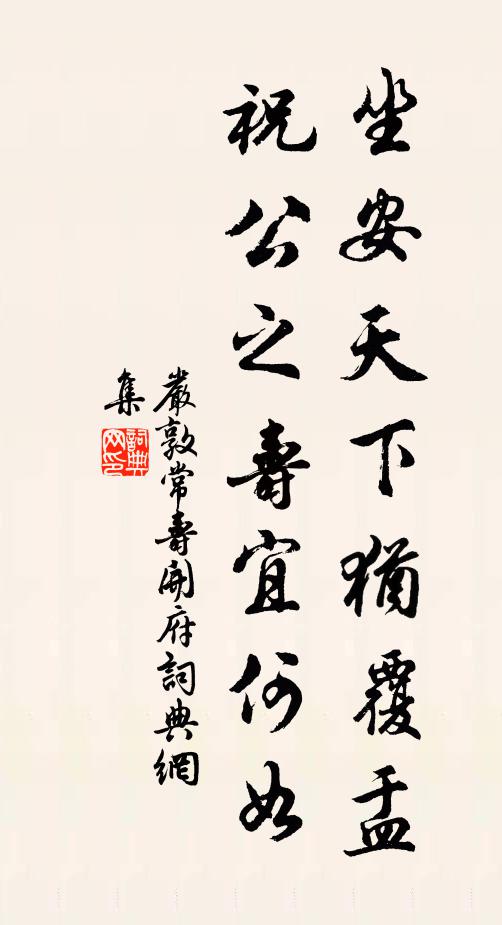 坐安天下猶覆盂
祝公之壽宜何如
嚴敦常壽開府詞典網
集
詞典
网印